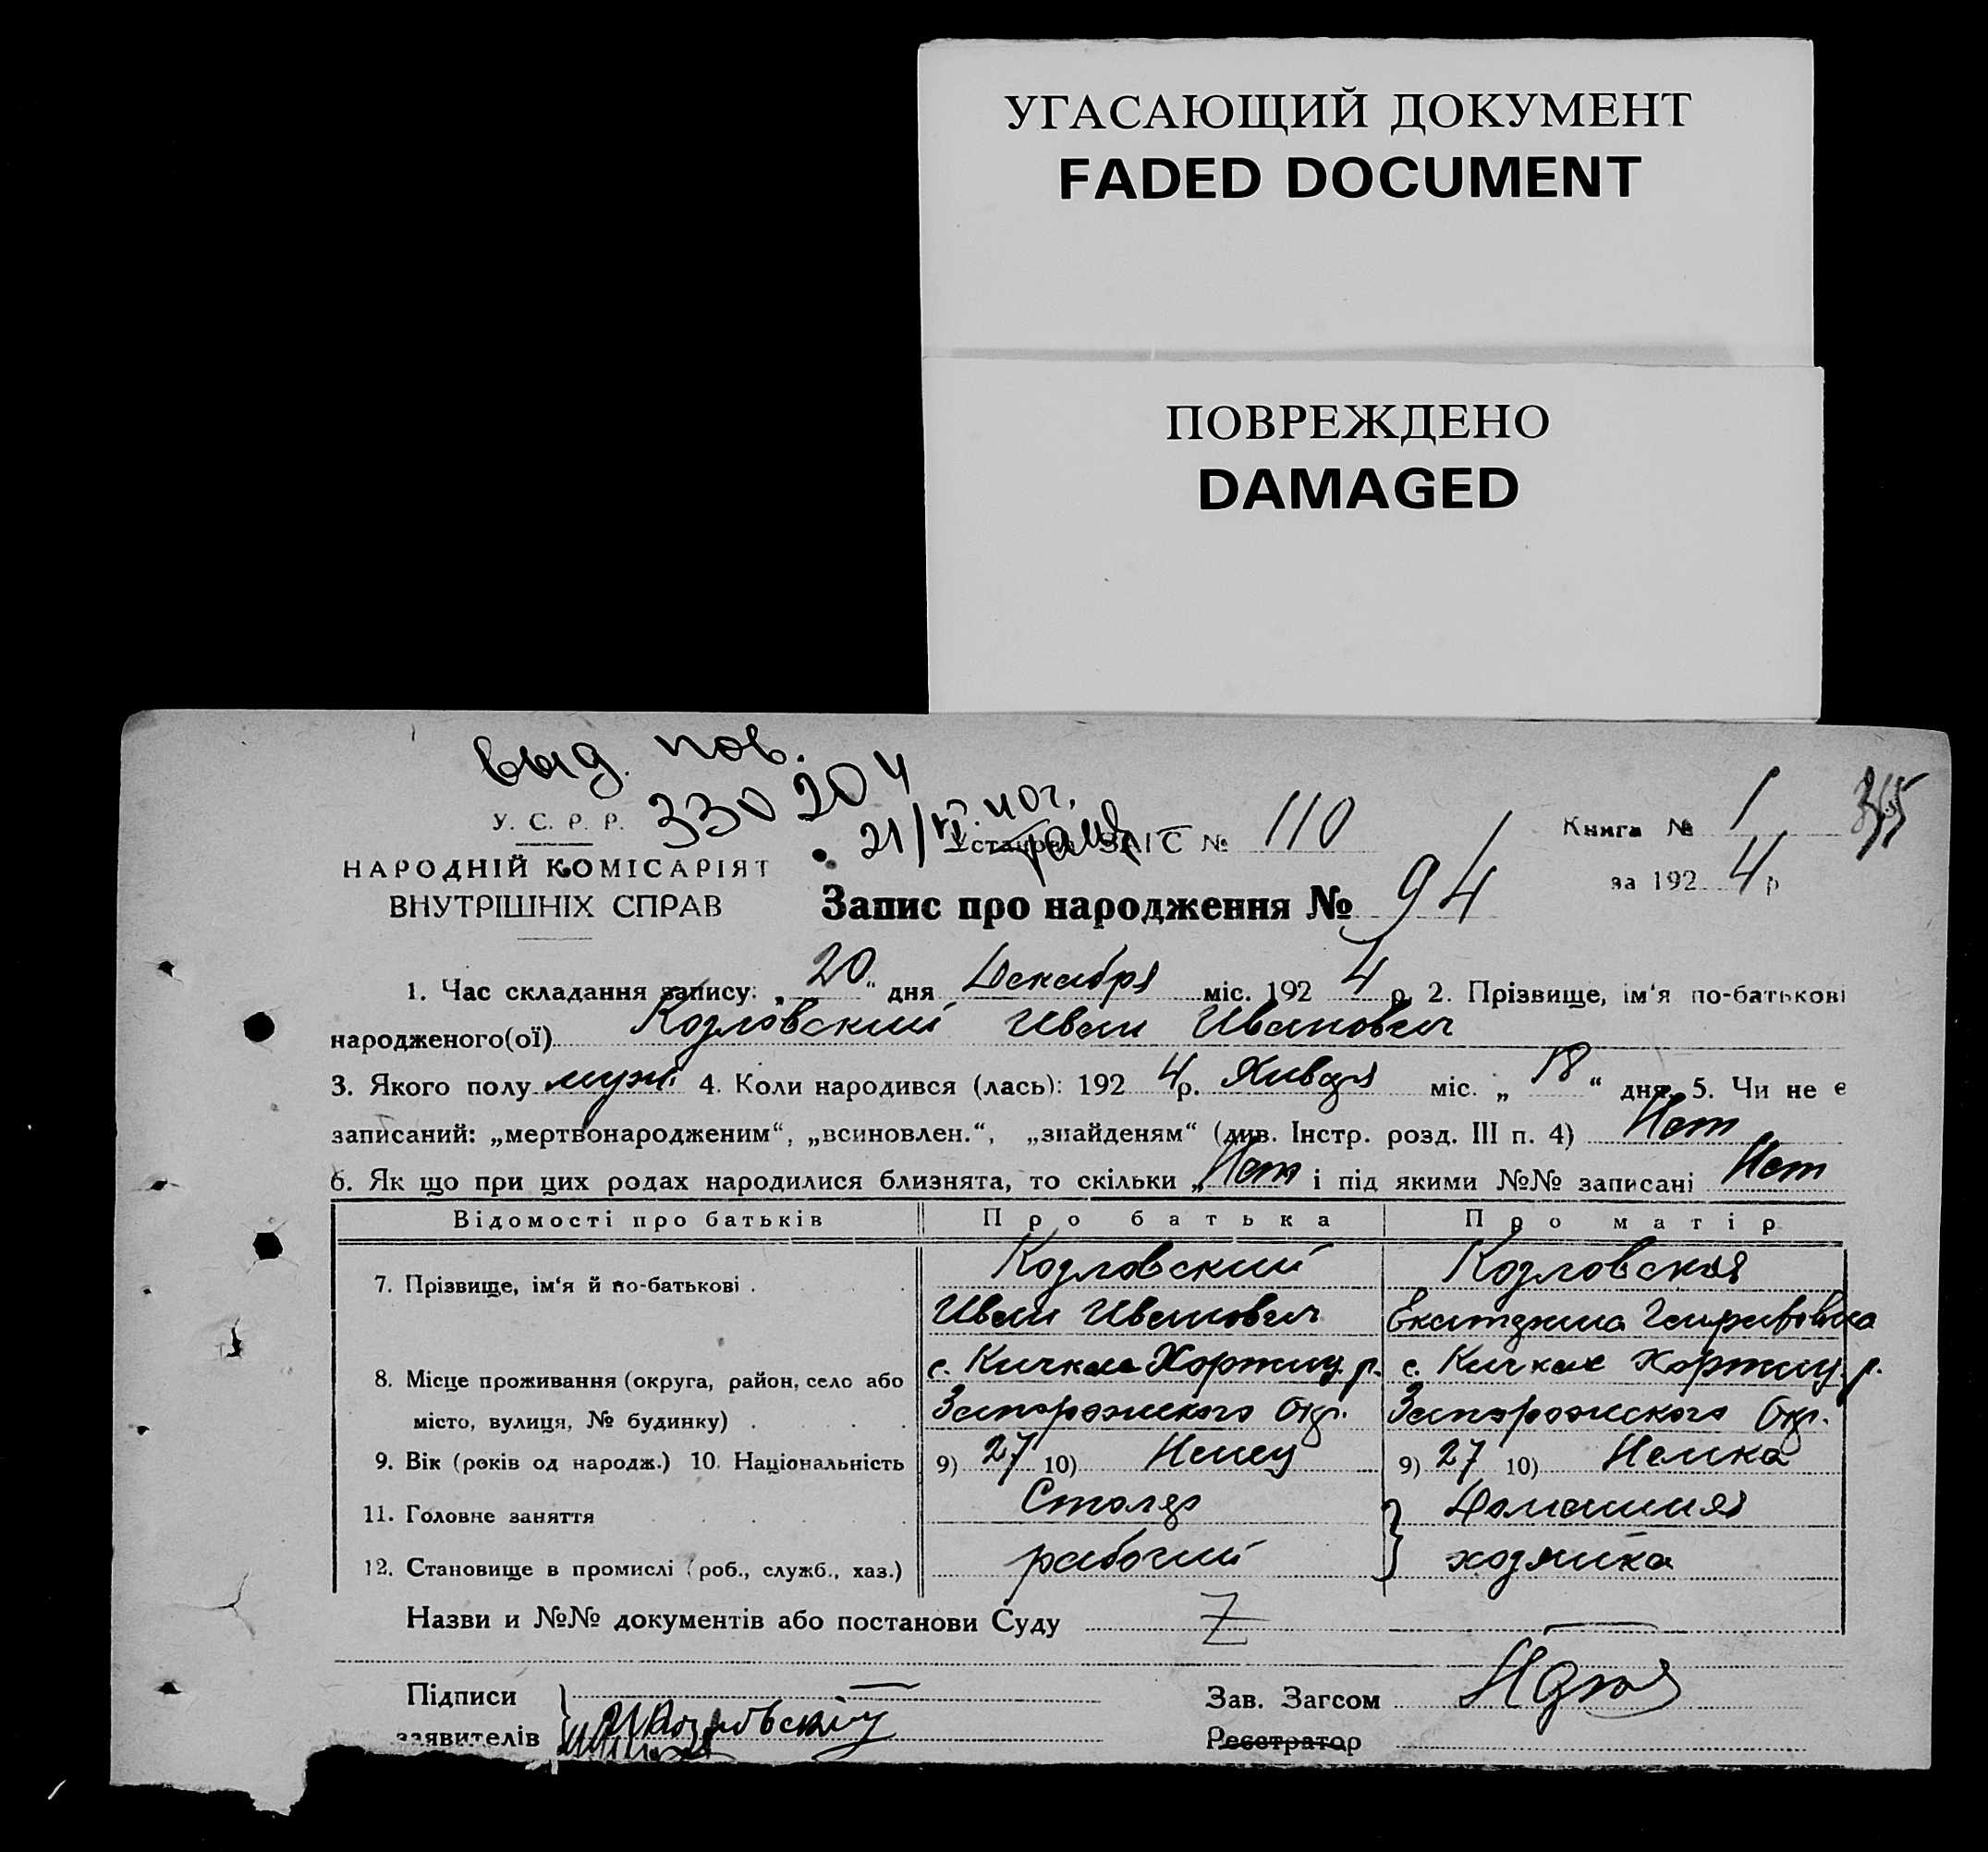 УГАСАЮЩИЙ ДОКУМЕНТ
FADED DOCUMENT
ПОВРЕЖДЕНО
DAMAGED
выд. пов.
330204
21/VI 40г.
У. С. Р. Р.
НАРОДНІЙ КОМІСАРІЯТ
ВНУТРІШНІХ СПРАВ
ЗАГС № 110
Книга № 1
за 1924 р
Запис про народження № 94
1. Час складання запису: „20“ дня Декабря міс. 1924 р. 2. Прізвище, ім‘я по-батькові
народженого(ої) Козловский Иван Иванович
3. Якого полу муж. 4. Коли народився (лась): 1924 р. Января міс. „18“ дня. 5. Чи не є
записаний: „мертвонародженим“, „всиновлен.“, „знайденям“ (див. Інстр. розд. III п. 4) Нет
6. Як що при цих родах народилися близнята, то скільки „Нет і під якими №№ записані Нет
Відомості про батьків Про батька Про матір
7. Прізвище, ім‘я й по-батькові . Козловский Козловская
Иван Иванович Екатерина
8. Місце проживання (округа, район, село або с. Кичкас Хортиц. р. с. Кичкас Хортиц. р.
місто, вулиця, № будинку) . Запорожского Окр. Запорожского Окр.
9. Вік (років од народж.) 10. Національність 9) 27 10) Немец 9) 27 10) Немка
11. Головне заняття Столяр Домашняя
12. Становище в промислі (роб., служб., хаз.) рабочий хозяйка
Назви и №№ документів або постанови Суду Z
Підписи
заявителів Козловский
Зав. Загсом
Реєстратор